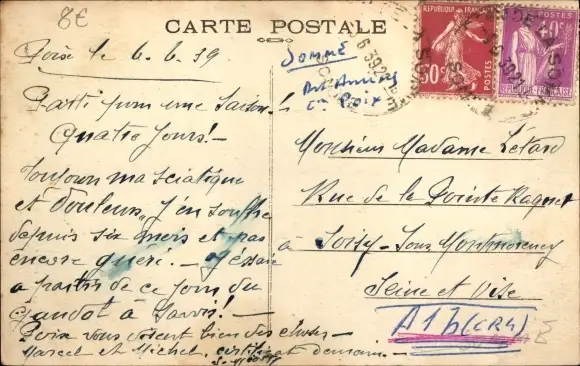 8€
CARTE POSTALE
Poix le 6.6.39
SOMME
Parti pour une saison
Quatre jours! -
Toujours ma sciatique
et douleurs, j'en souffre
depuis six mois et pas
encore guéri. - J'essaie
a partir de ce jour du
à Paris! -
vous disent bien des choses -
Marcel et Michel, certificat demain. -
RÉPUBLIQUE FRANÇAISE
30c
POSTES
40c
POSTES
RÉPUBLIQUE FRANÇAISE
Monsieur Madame Létard
Rue de la Pointe Raquet
à Soisy-Sous Montmorency
Seine et Oise
A1h (CR4)